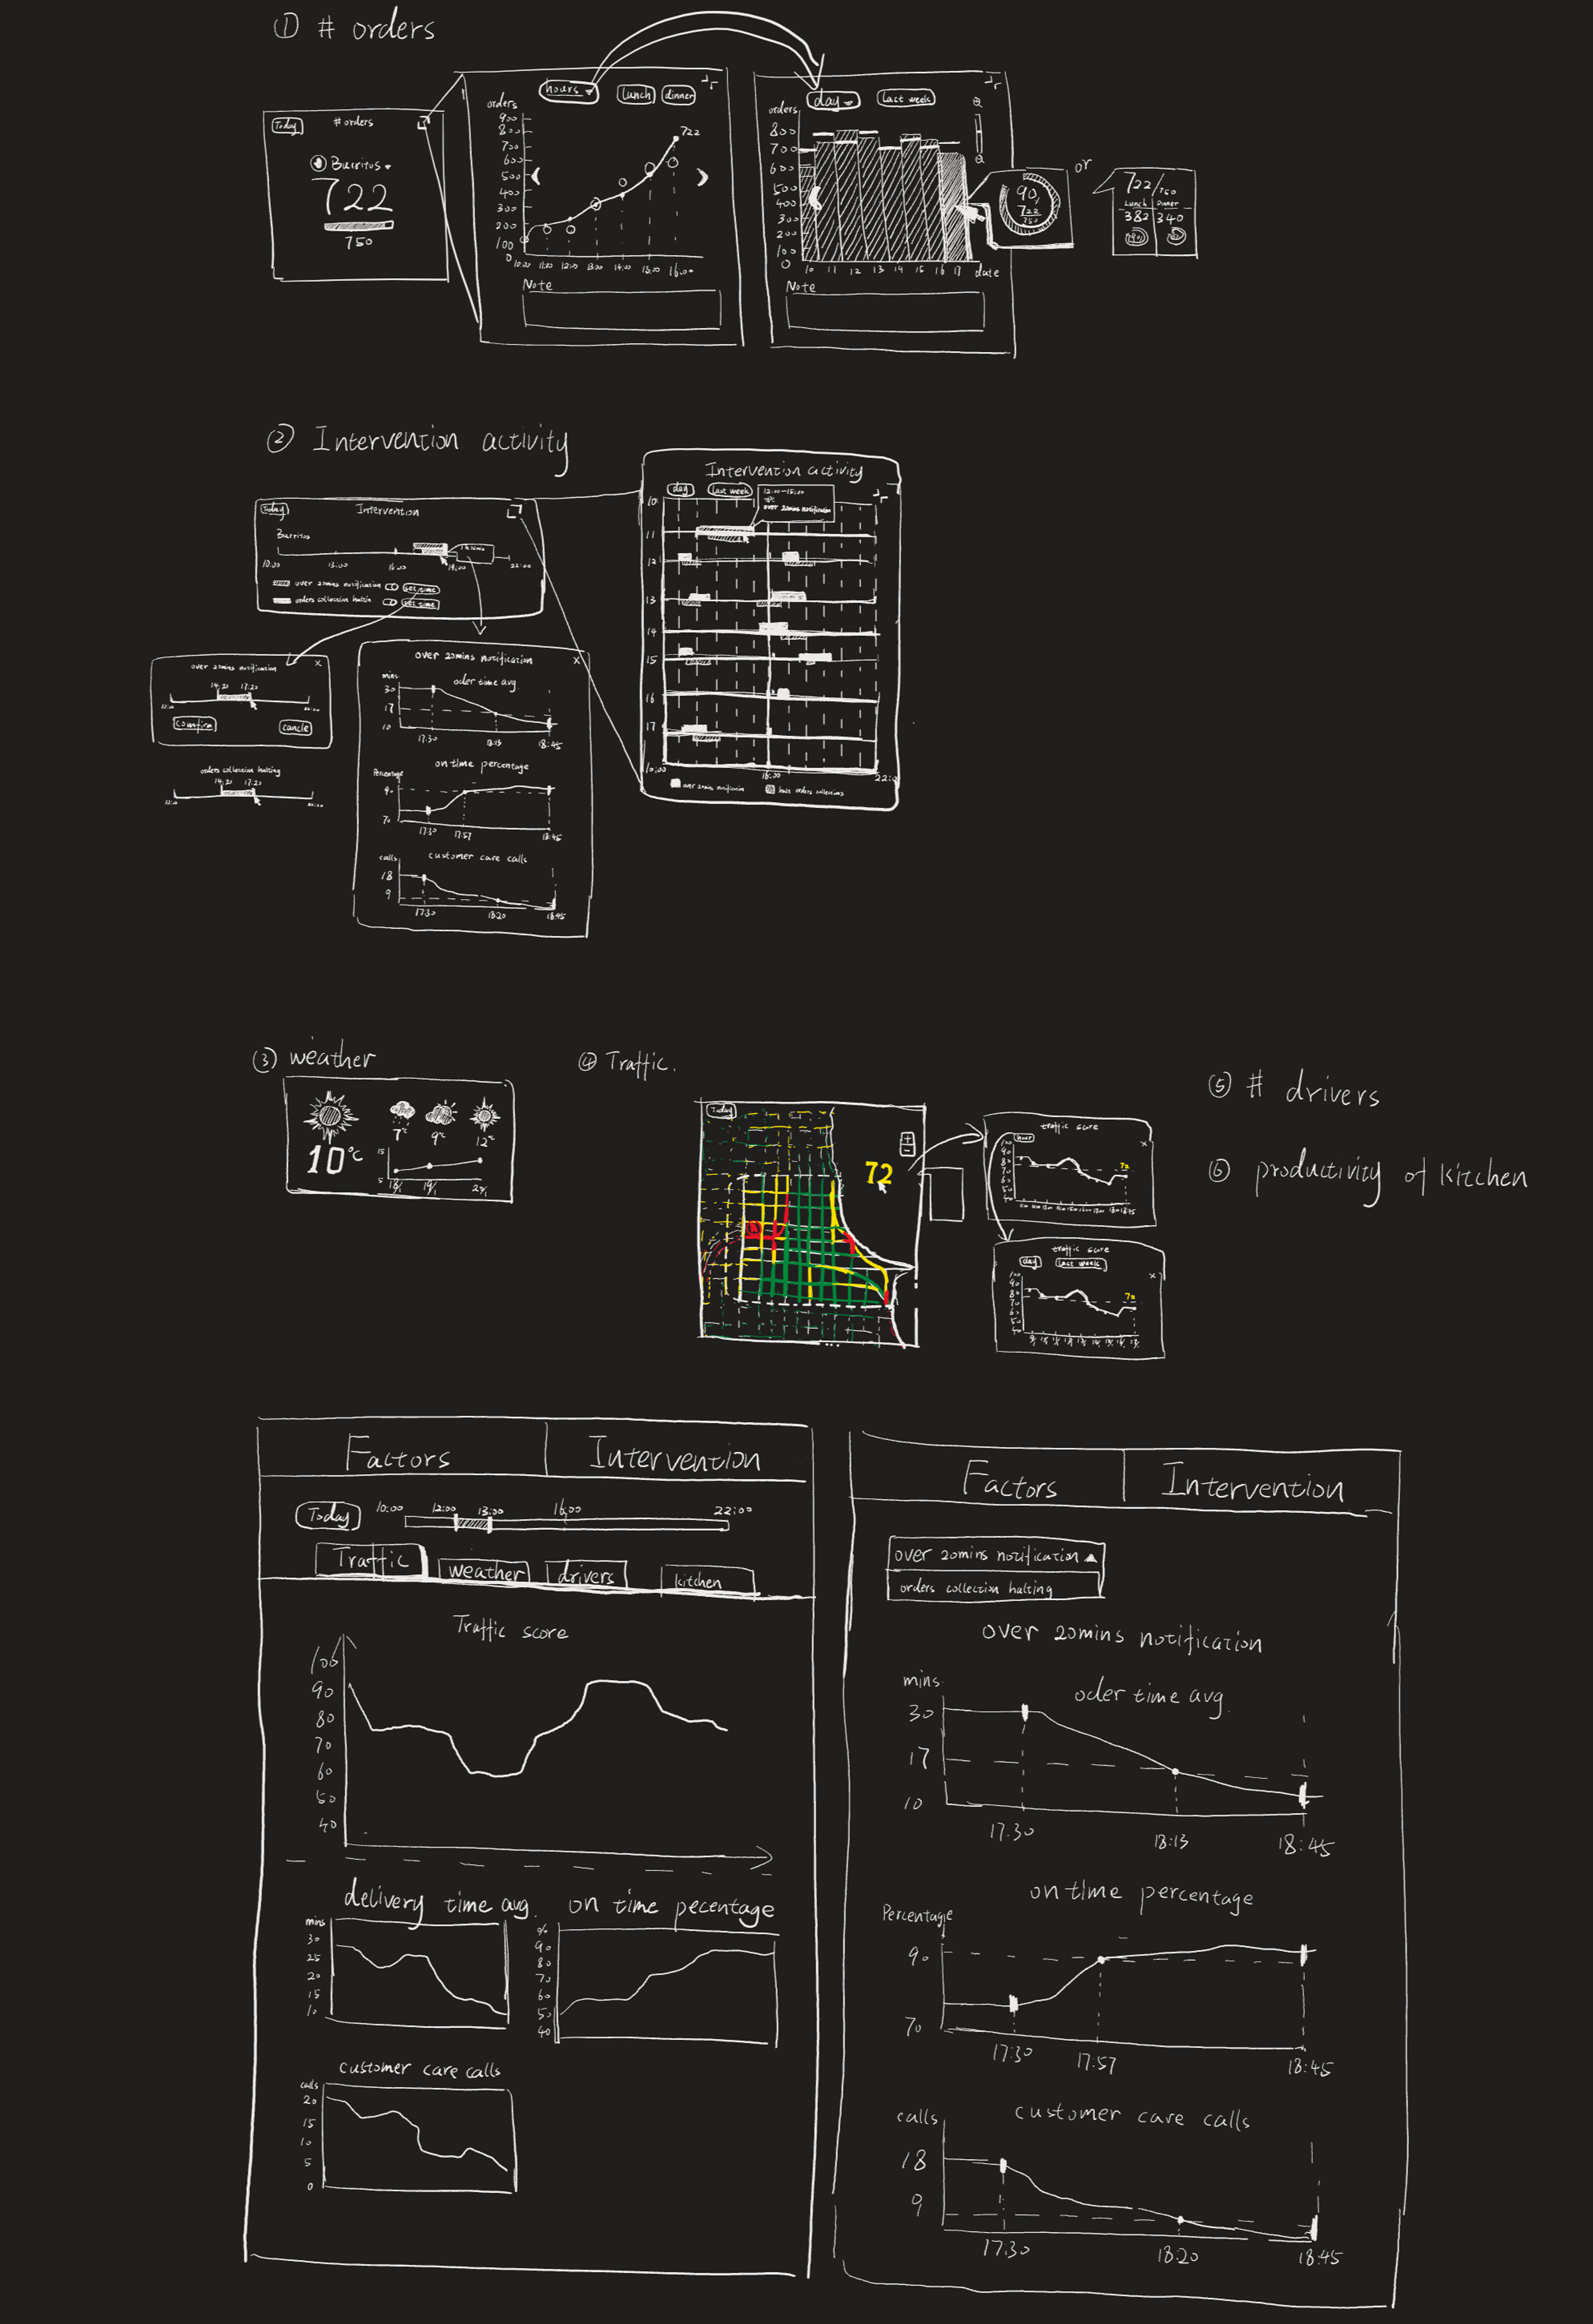 ① # orders
Today
# orders
Burritos
722
750
hours
lunch
dinner
orders
900
800
700
600
500
400
300
200
100
0
722
10:00 11:00 12:00 13:00 14:00 15:00 16:00
Note
day
Last week
orders
800
700
600
500
400
300
200
100
0
10 11 12 13 14 15 16 17 date
Note
90%
722
750
or
722/750
Lunch Dinner
382 340
② Intervention activity
Today
Intervention
Burritos
10:00 13:00 16:00 19:00 22:00
over 20mins notification set time
orders collection haltin set time
over 20mins notification
x
14:20 17:20
comfirm
cancle
orders collection halting
14:20 17:20
over 20mins notification
x
mins
oder time avg.
30
17
10
17:30 18:13 18:45
on time percentage
Percentage
90
70
17:30 17:57 18:45
calls
customer care calls
18
9
17:30 18:20 18:45
Intervention activity
day
Last week
12:00-15:00
over 20mins notification
10
11
12
13
14
15
16
17
10:00 16:00 22:00
over 20mins notification
halt orders collections
③ weather
10°C
7°C 9°C 12°C
15
5
18/1 19/1 20/1
④ Traffic.
Today
+
-
72
traffic score
x
hour
100
90
80
70
60
50
40
72
traffic score
day
Last week
x
100
90
80
70
60
50
40
72
⑤ # drivers
⑥ productivity of kitchen
Factors
Intervention
Today
10:00 12:00 13:00 16:00 22:00
Traffic
weather
drivers
kitchen
Traffic score
100
90
80
70
60
50
40
delivery time avg.
mins
30
25
20
15
10
on time pecentage
%
90
80
70
60
50
40
customer care calls
calls
20
15
10
5
0
Factors
Intervention
over 20mins notification
orders collection halting
over 20mins notification
mins.
oder time avg.
30
17
10
17:30 18:13 18:45
on time percentage
Percentage
90
70
17:30 17:57 18:45
calls
customer care calls
18
9
17:30 18:20 18:45